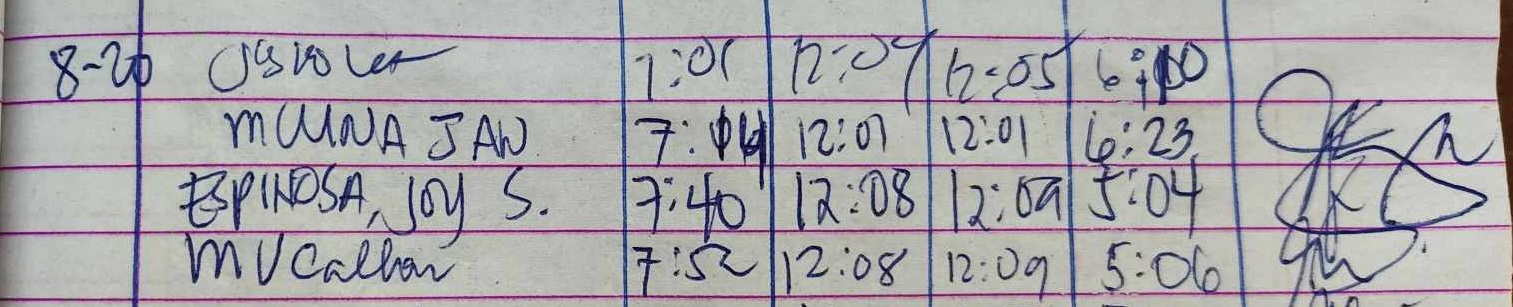 8-20 7:01 12:04 12:05 6:10
MUNA JAN 7:14 12:01 12:01 6:23
ESPINOSA, JOY S. 7:40 12:08 12:09 5:04
7:52 12:08 12:09 5:06